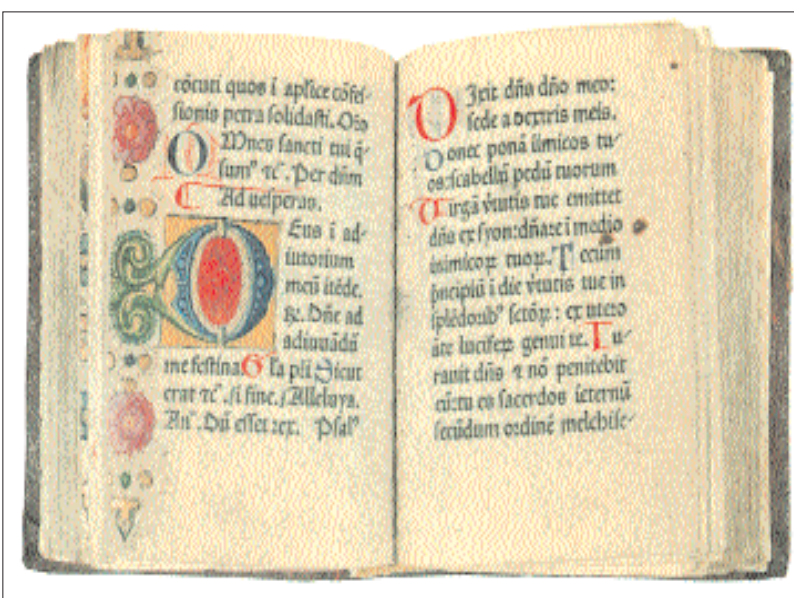 cōcuti quos ī aplīce cōfeſ-
ſionis petra ſolidaſti. Orō
OMnes ſancti tui q̄-
ſumꝰ ⁊c̄. Per dūm
Ad ueſperas.
DEus ī ad-
iutorium
meū ītēde.
⁊c. Dn̄e ad
adiuuādū
me feſtina. Gl̄a pr̄i Sicut
erat ⁊c̄. ſi fine. Alleluya.
An̄. Dū eſſet rex. Pſalꝰ
DIxit dn̄s dn̄o meo:
ſede a dextris meis.
Donec ponā iīmicos tu-
os: ſcabellū pedū tuorum
Uirgā v̄tutis tue emittet
dn̄s ex ſyon: dn̄are ī medio
inimicoꝝ tuoꝝ. Tecum
pⁿcipiū ī die v̄tutis tue in
ſplēdoribꝰ ſctōꝝ: ex utero
āte luciferꝝ genui te. Iu-
rauit dn̄s ⁊ nō penitebit
eū: tu es ſacerdos īeternū
ſecūdum ordinē melchiſe-